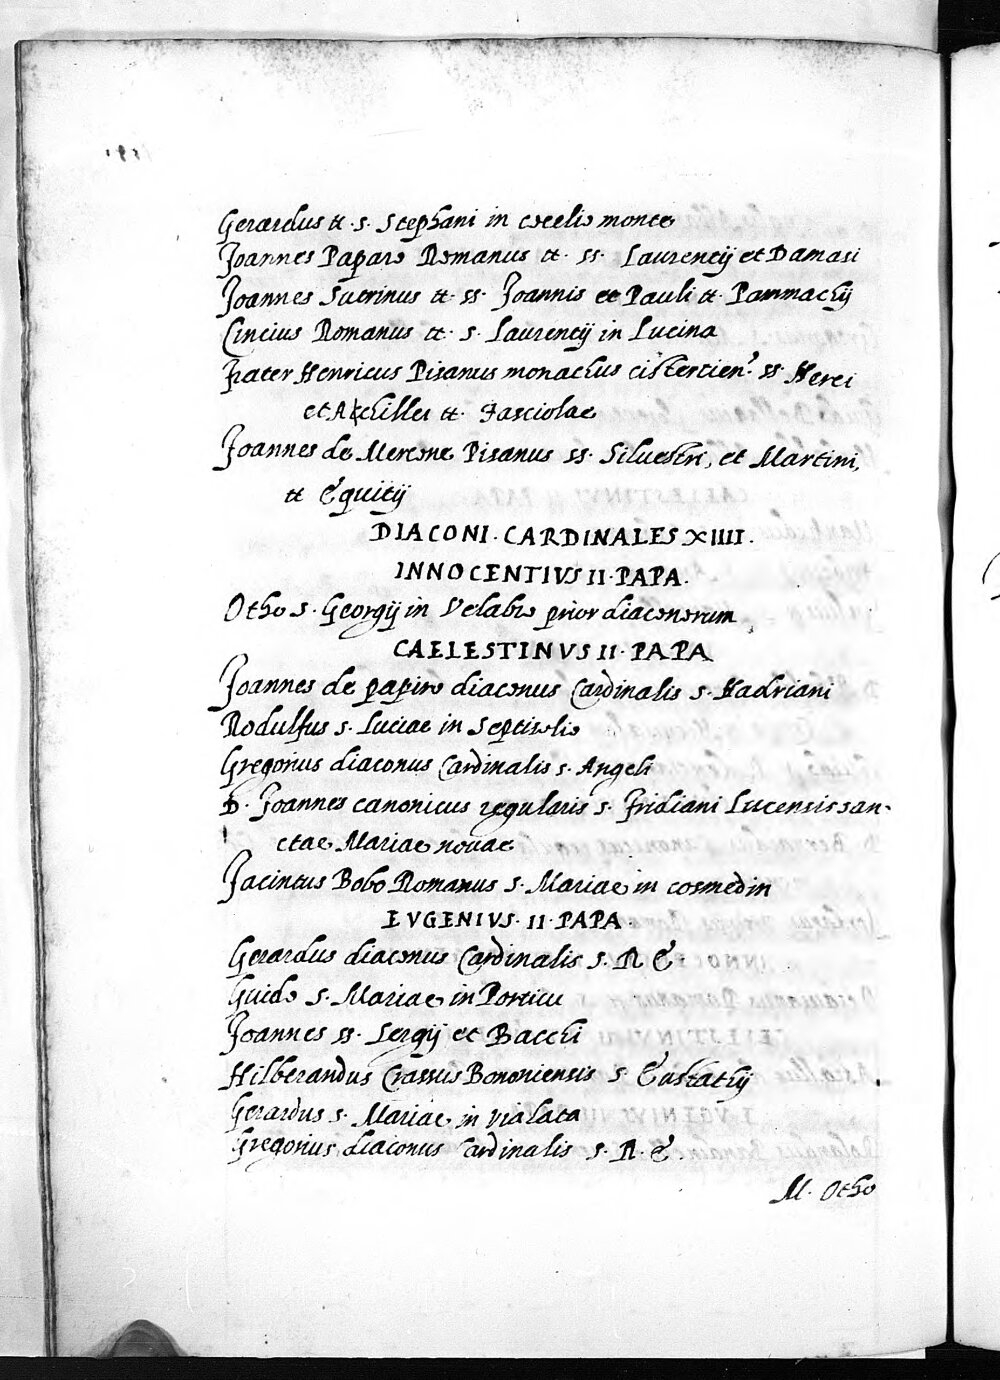 Gerardus tt. s. Stephani in coelio monte
Joannes Paparo Romanus tt. ss. Laurentij et Damasi
Joannes Sutrinus tt. ss. Joannis et Pauli tt. Pammachij
Cincius Romanus tt. s. Laurentij in Lucina
Frater Henricus Pisanus monachus cistertien. ss. Nerei
et Achillei tt. Fasciolae
Joannes de Mercone Pisanus ss. Siluestri, et Martini,
tt Equitij
DIACONI. CARDINALES XIIII.
INNOCENTIVS II. PAPA.
Otho s. Georgij in Velabro prior diaconorum
CAELESTINVS II. PAPA
Joannes de papiro diaconus Cardinalis s. Hadriani
Rodulfus s. Luciae in Septisolio
Gregorius diaconus Cardinalis s. Angeli
D. Joannes canonicus regularis s. Fridiani Lucensis san-
ctae Mariae nouae
Jacintus Bobo Romanus s. Mariae in cosmedin
EVGENIVS. II. PAPA.
Gerardus diaconus Cardinalis s. R. E.
Guido s. Mariae in Porticu
Joannes ss. Sergij et Bacchi
Hilberandus Crassus Bononiensis s. Eustathij
Gerardus s. Mariae in vialata
Gregorius diaconus Cardinalis s. R. E.
M. Otho